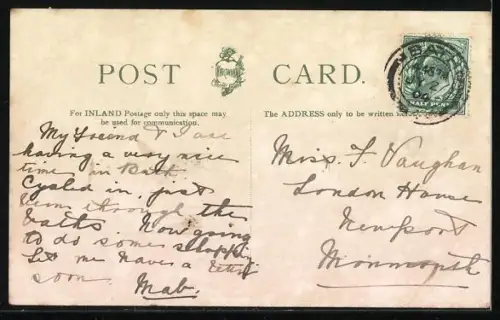 POST CARD.
For INLAND Postage only this space may
be used for communication.
The ADDRESS only to be written
BATH
HALF PENNY
My friend & I are
having a very nice
time in Bath
Cycled in, just
been through the
baths. Now going
to do some shopping
Let me have a letter
soon.
Mab.
Miss. F. Vaughan
London House
Newport
Monmouth